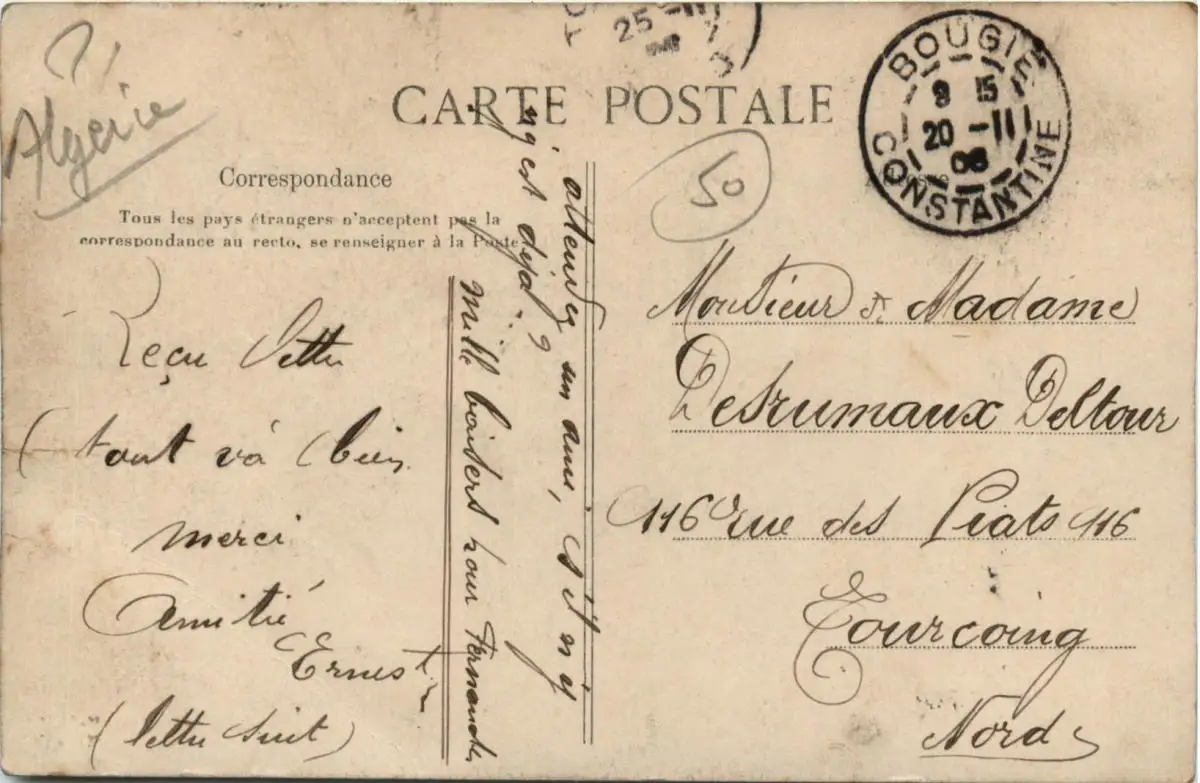 25 - 11
7
BOUGIE
9 15
20 - 11
06
CONSTANTINE
CARTE POSTALE
Algérie
50
Correspondance
Tous les pays étrangers n'acceptent pas la
correspondance au recto, se renseigner à la Poste
Reçu lettre
tout và bien
merci
Amitié
Ernest
(lettre suit)
Mille baisers pour Fernande
attendez un an, s'il n'y
n'y est déjà
Monsieur & Madame
Desrumaux Deltour
116 rue des Piats 116
Tourcoing
Nord